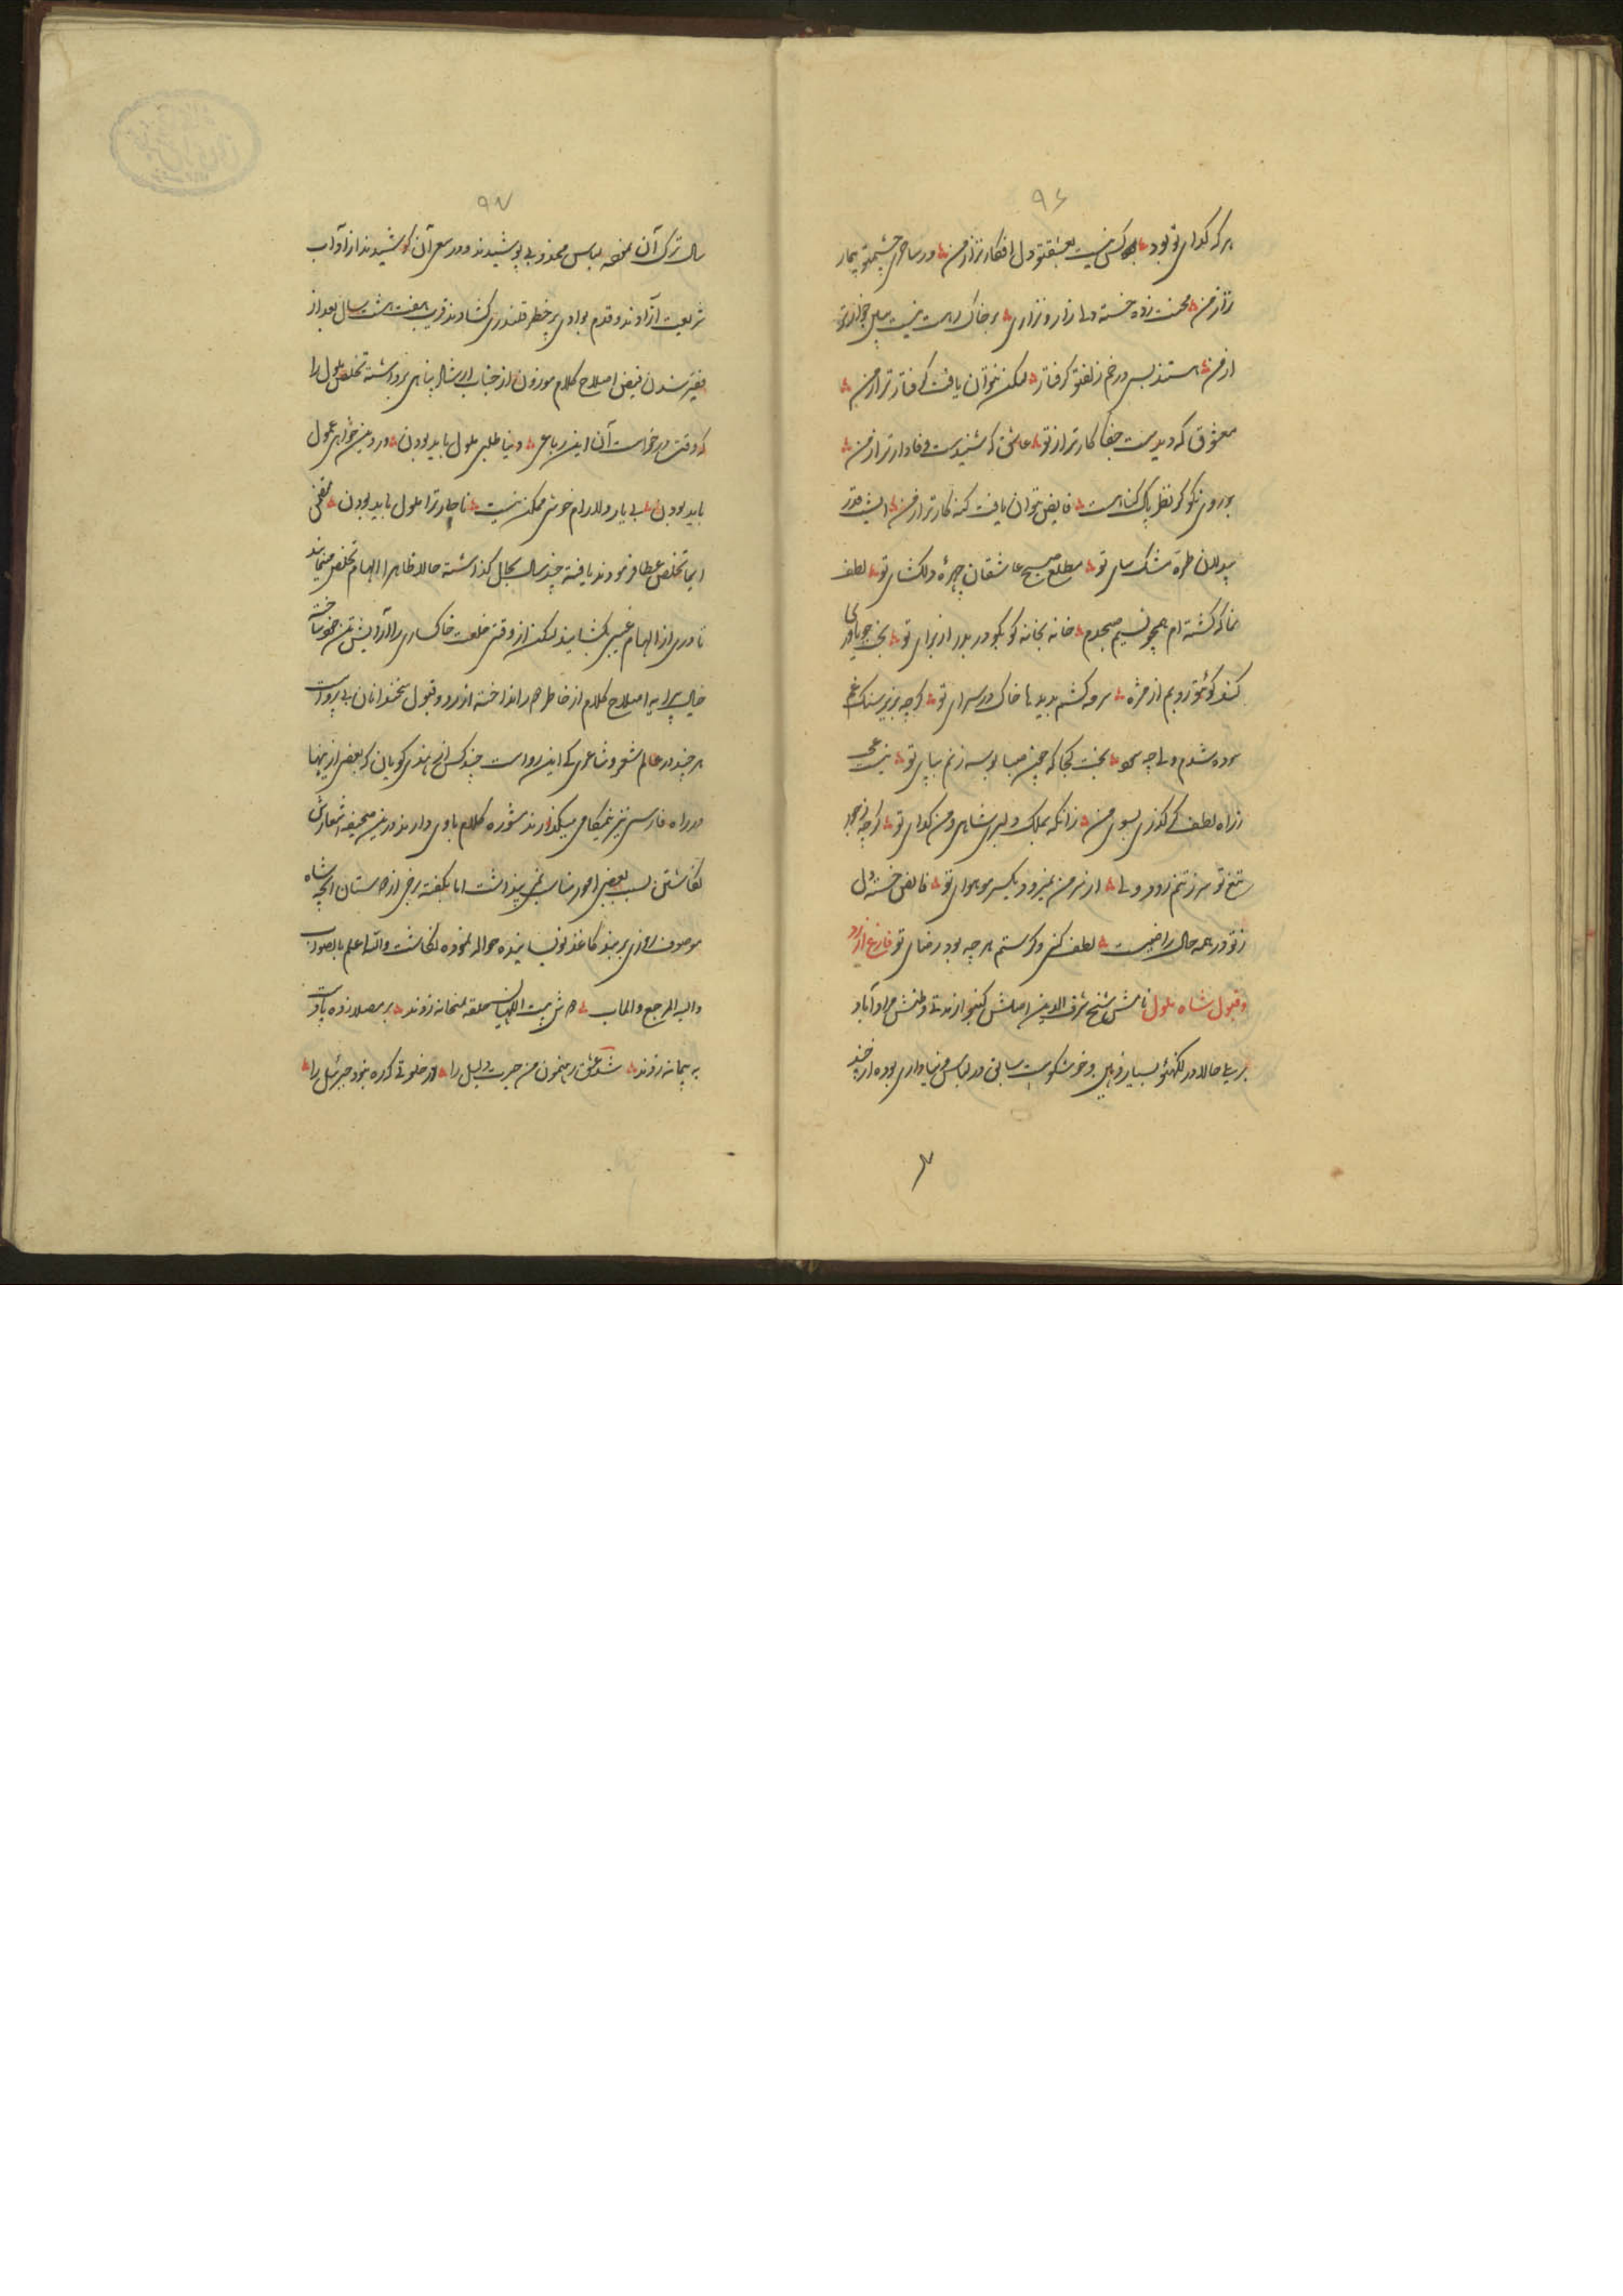 ۹۶
هر که گدای تو بود کس نیست بعشقتو دل افکار تراز من در ساحری چشمتو بیمار
تراز من محنت زده خسته دل زار و نزاری بر خاک رهت نیست کسی خوارتر
از من هستند بسی در خم زلفتو گرفتار لیکن نتوان یافت گرفتارتر از من
معشوق که دیدست جفاکارتر از تو عاشق که شنیدست وفادارتر از من
بر روی نکو گر نظر پاک گناهست فایض نتوان یافت گنه کارتر از من
بیدلان طره مشک سای تو مطلع صبح عاشقان چهره دلکشای تو لطف
نما که گشته ام همچو نسیم صبحدم خانه بخانه کو بکو در بدر از برای تو
کند کوئتو روبم از مژه سرمه کشم بدیدها خاک در سرای تو گرچه بزیر سنگ غم
سوده شدم ولی چه سود بخت کجا که چون صبا بوسه زنم بپای تو نیست
ز راه لطف گر گذری بسوی من زانکه بملک دلبری شاهی و من گدای تو گرچه ز خنجر
تیغ تو سر ز تنم رود ولی از سر من نمیرود یکسر مو هوای تو فایض خسته دل
ز تو در همه حال راضیست لطف کنی و گر ستم هرچه بود رضای تو فارغ از رد
و قبول شاه ملول نامش شیخ شرف الدین اصلش کنبو از مدتی وطنش مرادآباد
بریلی حالا در لکهنؤ بسیار ذهین و خوشگوست سابق در لباس دنیاداری بوده از چند
۹۷
سال ترک آن نموده لباس مجذوبی پوشیدند و در سعی آن کوشیدند از آداب
شریعت آزادند و قدم بوادی پر خطر قلندری کشادند قریب هفت هشت سال بعد از
فقیر شدن فیض اصلاح کلام موزون از جناب ارشاد پناهی برداشته تخلص ملول را
که وقت درخواست آن این رباعی دنیا طلبی ملول باید بودن در دین خواهی عمول
باید بودن بی یار و دلارام خوشی ممکن نیست ناچار ترا ملول باید بودن
ایما تخلص عطا فرمودند یافته چند سال بحال گذاشته حالا ظاهرا الهام تخلص مینمایند
تا دری از الهام غیبی بکشایند لیکن از وقتی خلعت خاکساری را آرایش تن خود ساخته
خیال پیرایه اصلاح کلام از خاطر هم انداخته از رد و قبول سخندانان بی پرواست
هر چند در عالم شعر و شاعری کی این رواست چند کس از هندی گویان که بعضی از اینها
در راه فارسی نیز نیمگامی میگذارند مشوره کلام باوی دارند درین صحیفه اشعارش
نگاشتن بسبب بعضی امور مناسب نمی پنداشت اما بگفته برخی از دوستان آنچه شاه
موصوف روزی بر بند کاغذ نویسانیده حواله نموده نگاشت والله اعلم بالصواب
والیه المرجع والماب حلقه بمیخانه زدند بر مصلا زده پا دست
به پیمانه زدند شد عشق رهنمون من حیرت دلیل را در خلوتی که ره نبود جبرئیل را